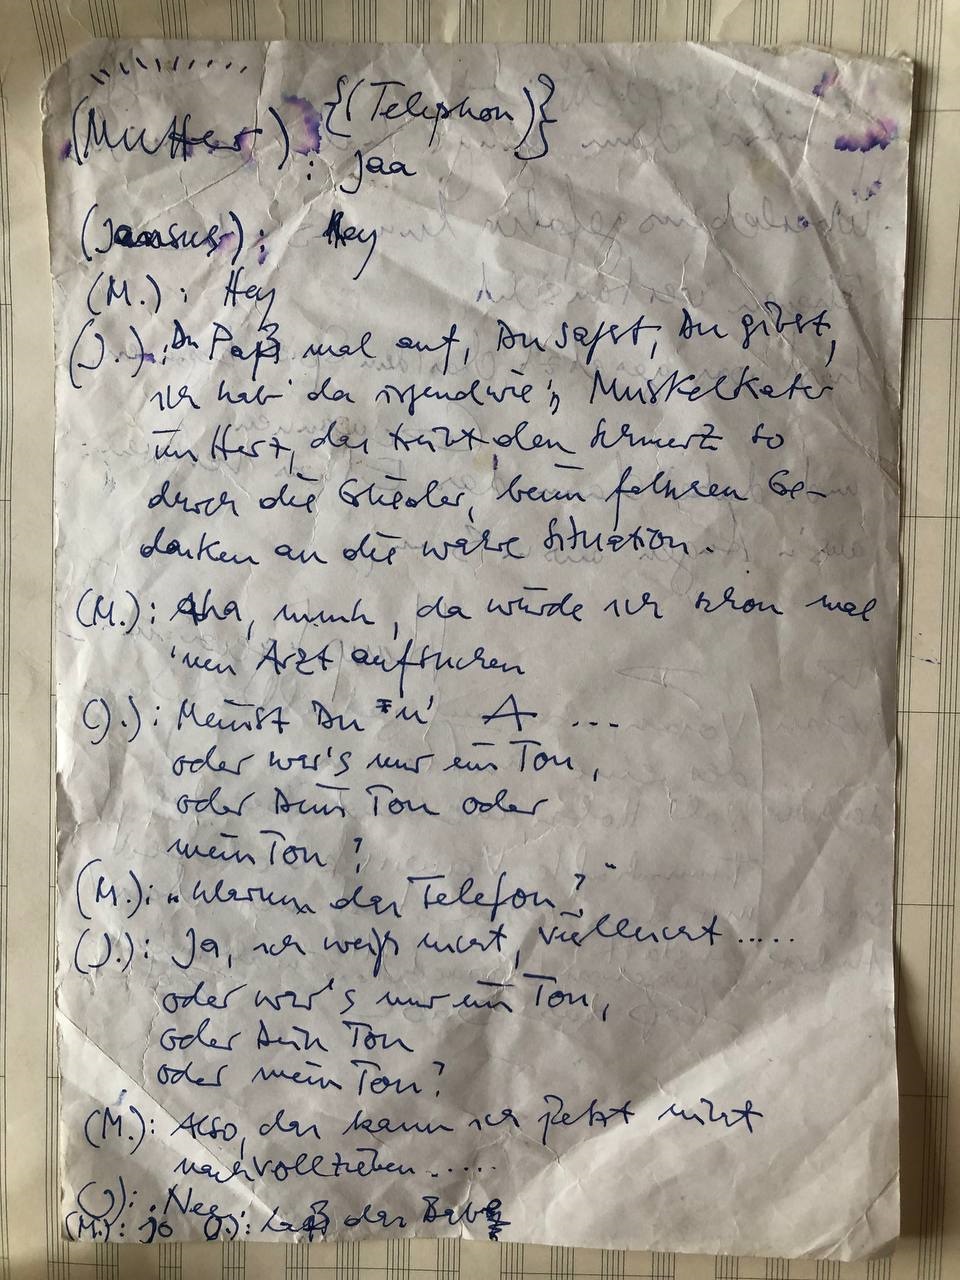 {(Telephon)}
(Mutter) : Jaa
(Jaasus) : Hey
(M.) : Hey
(J.) : Du Paß mal auf, Du sagst, Du gibst,
ich hab' da irgendwie 'n Muskelkater
im Herz, der treibt den Schmerz so
durch die Glieder, beim fahren Ge-
danken an die wahre Situation.
(M.): Aha, mmh, da würde ich schon mal
'nen Arzt aufsuchen
(J.): Meinst Du 'n' A ...
oder war's nur ein Ton,
oder Dein Ton oder
mein Ton?
(M.): "Warum das Telefon?"
(J.): Ja, ich weiß nicht, vielleicht .....
oder war's nur ein Ton,
oder Dein Ton
oder mein Ton?
(M.): Also, das kann ich jetzt nicht
nachvollziehen ......
(J): Nee
(M.): jo (J.): Laß das